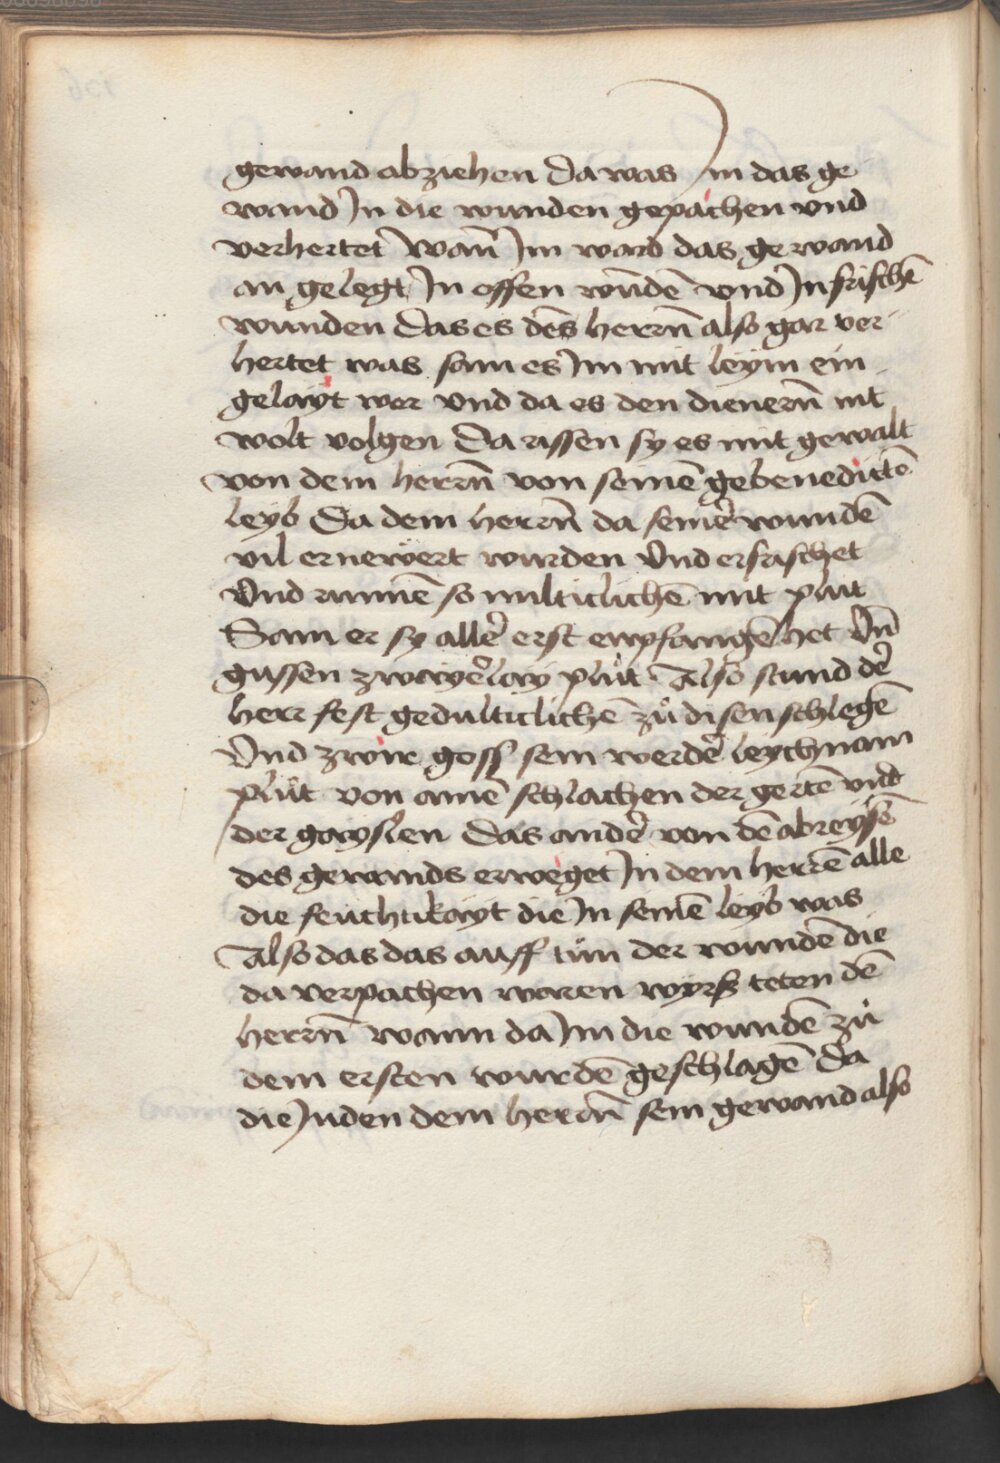 gewand abziehen Da was Im das ge
wand In die wunden gepachen vnd
verhertet Wan̄ Im ward das gewand
an gelegt In offen wūdē vnd In frischē
wunden Das es dēs herrn̄ also gar ver
hertet was sam es Im mit leym ein
gelayt wer vnd da es den dienern̄ nit
wolt volgen Da rissen sy es mit gewalt
von dem herrn̄ von seinē gebenedictē
leyb Da dem herrn̄ da seinẽ wundē
vil ernewert wurden Vnd erfrischet
Vnd runnē so milticlichē mit plut
Sam er sy allẽ erst empfangē het Vn̄
gussen zwayẽlay plůt Also stund dẽ
herr fest gedulticlichē zů disen schlegē
Vnd zwir goss sein werdẽ leychnam
plůt von ainē schlachen der gertē vnd
der gayslen Das andẽ von dē abreysē
des gewands erweget In dem herrē alle
die feuchtikayt die In seinē leyb was
Also das das auff tůn der wundē die
da verpachen waren wyrß teten dē
herrn̄ wann da Im die wundē zů
dem ersten wurdē geschlagē Da
die Juden dem herrn̄ sein gewand also